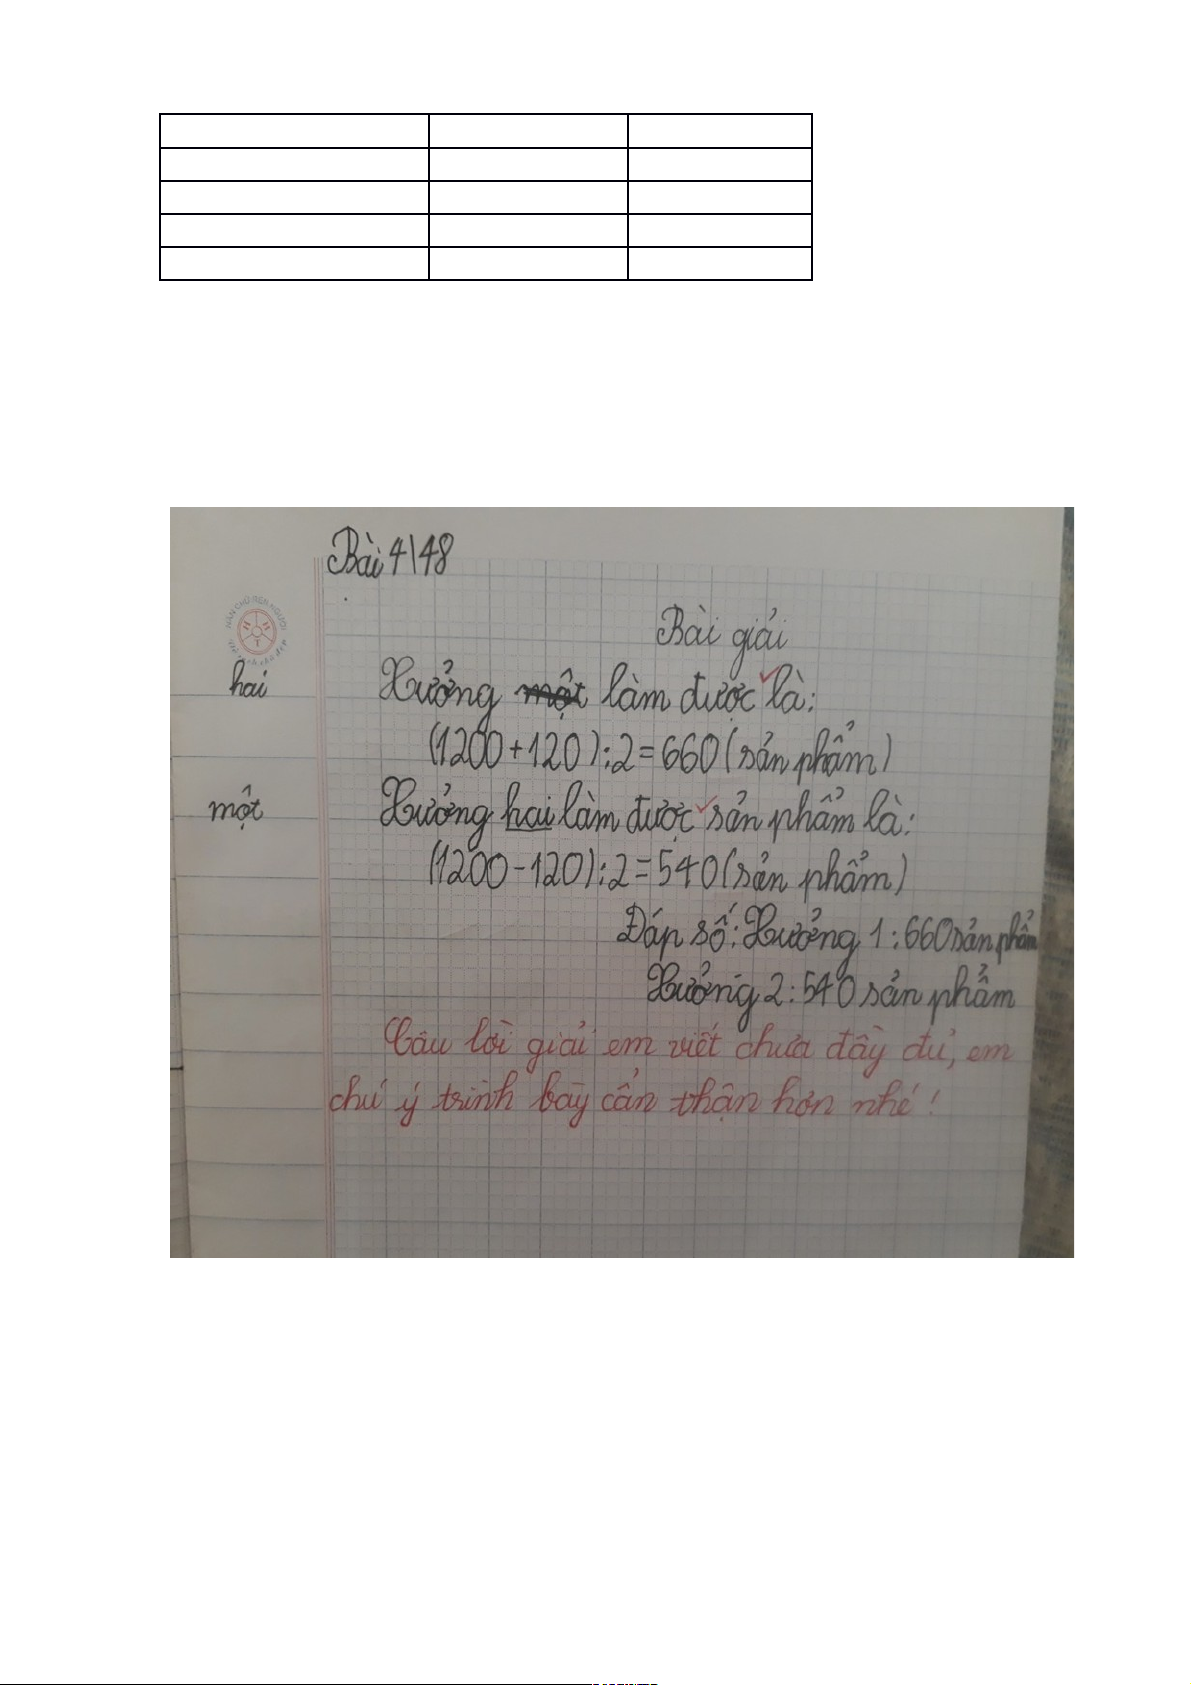 Bài 4/48
NẮN CHỮ RÈN NGƯỜI
Bài giải
hai Xưởng một làm được là:
(1200+120):2=660(sản phẩm)
một Xưởng hai làm được sản phẩm là:
(1200-120):2=540(sản phẩm)
Đáp số: Xưởng 1:660 sản phẩm
Xưởng 2:540 sản phẩm
Câu lời giải em viết chưa đầy đủ, em
chú ý trình bày cẩn thận hơn nhé!